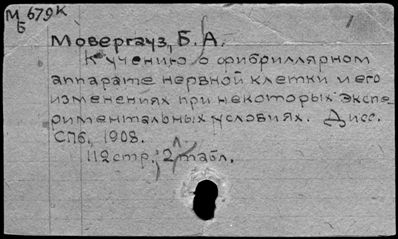 М 679К
Б
Мовергауз, Б. А.
К учению о фибриллярном
аппарате нервной клетки и его
изменениях при некоторых экспе-
риментальных условиях. Дисс.
СПб., 1908.
112 стр.; 2 л табл.